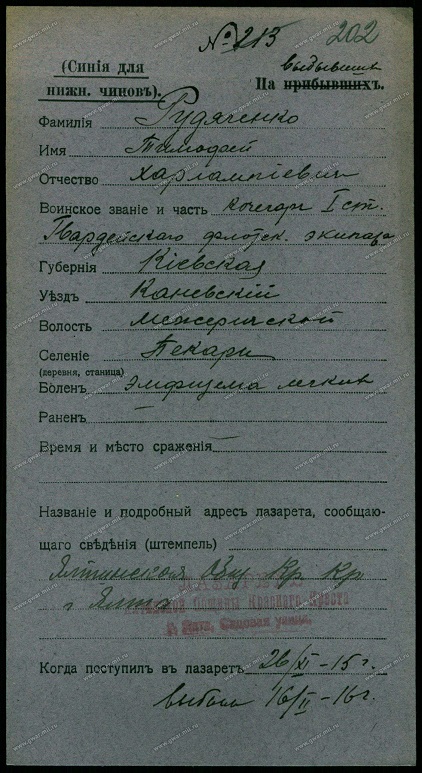 № 213 202
(Синія для
нижн. чиновъ).
выбывшихъ
На прибывшихъ.
Фамилія Рудяченко
Имя Тимофей
Отчество Харлампіевич
Воинское званіе и часть кочегаръ I ст.
Гвардейскаго флотск. экипажа
Губернія Кіевская
Уѣздъ Каневскій
Волость Межеричской
Селеніе Пекари
(деревня, станица)
Боленъ эмфизема легких
Раненъ —
Время и мѣсто сраженія —
Названіе и подробный адресъ лазарета, сообщаю-
щаго свѣдѣнія (штемпель)
Ялтинской Общ Кр Кр
г Ялта
Общины Краснаго Креста
г. Ялта, Садовая улица.
Когда поступилъ въ лазаретъ 26/XI - 15 г.
выбыл 16/II - 16 г.
www.gwar.mil.ru